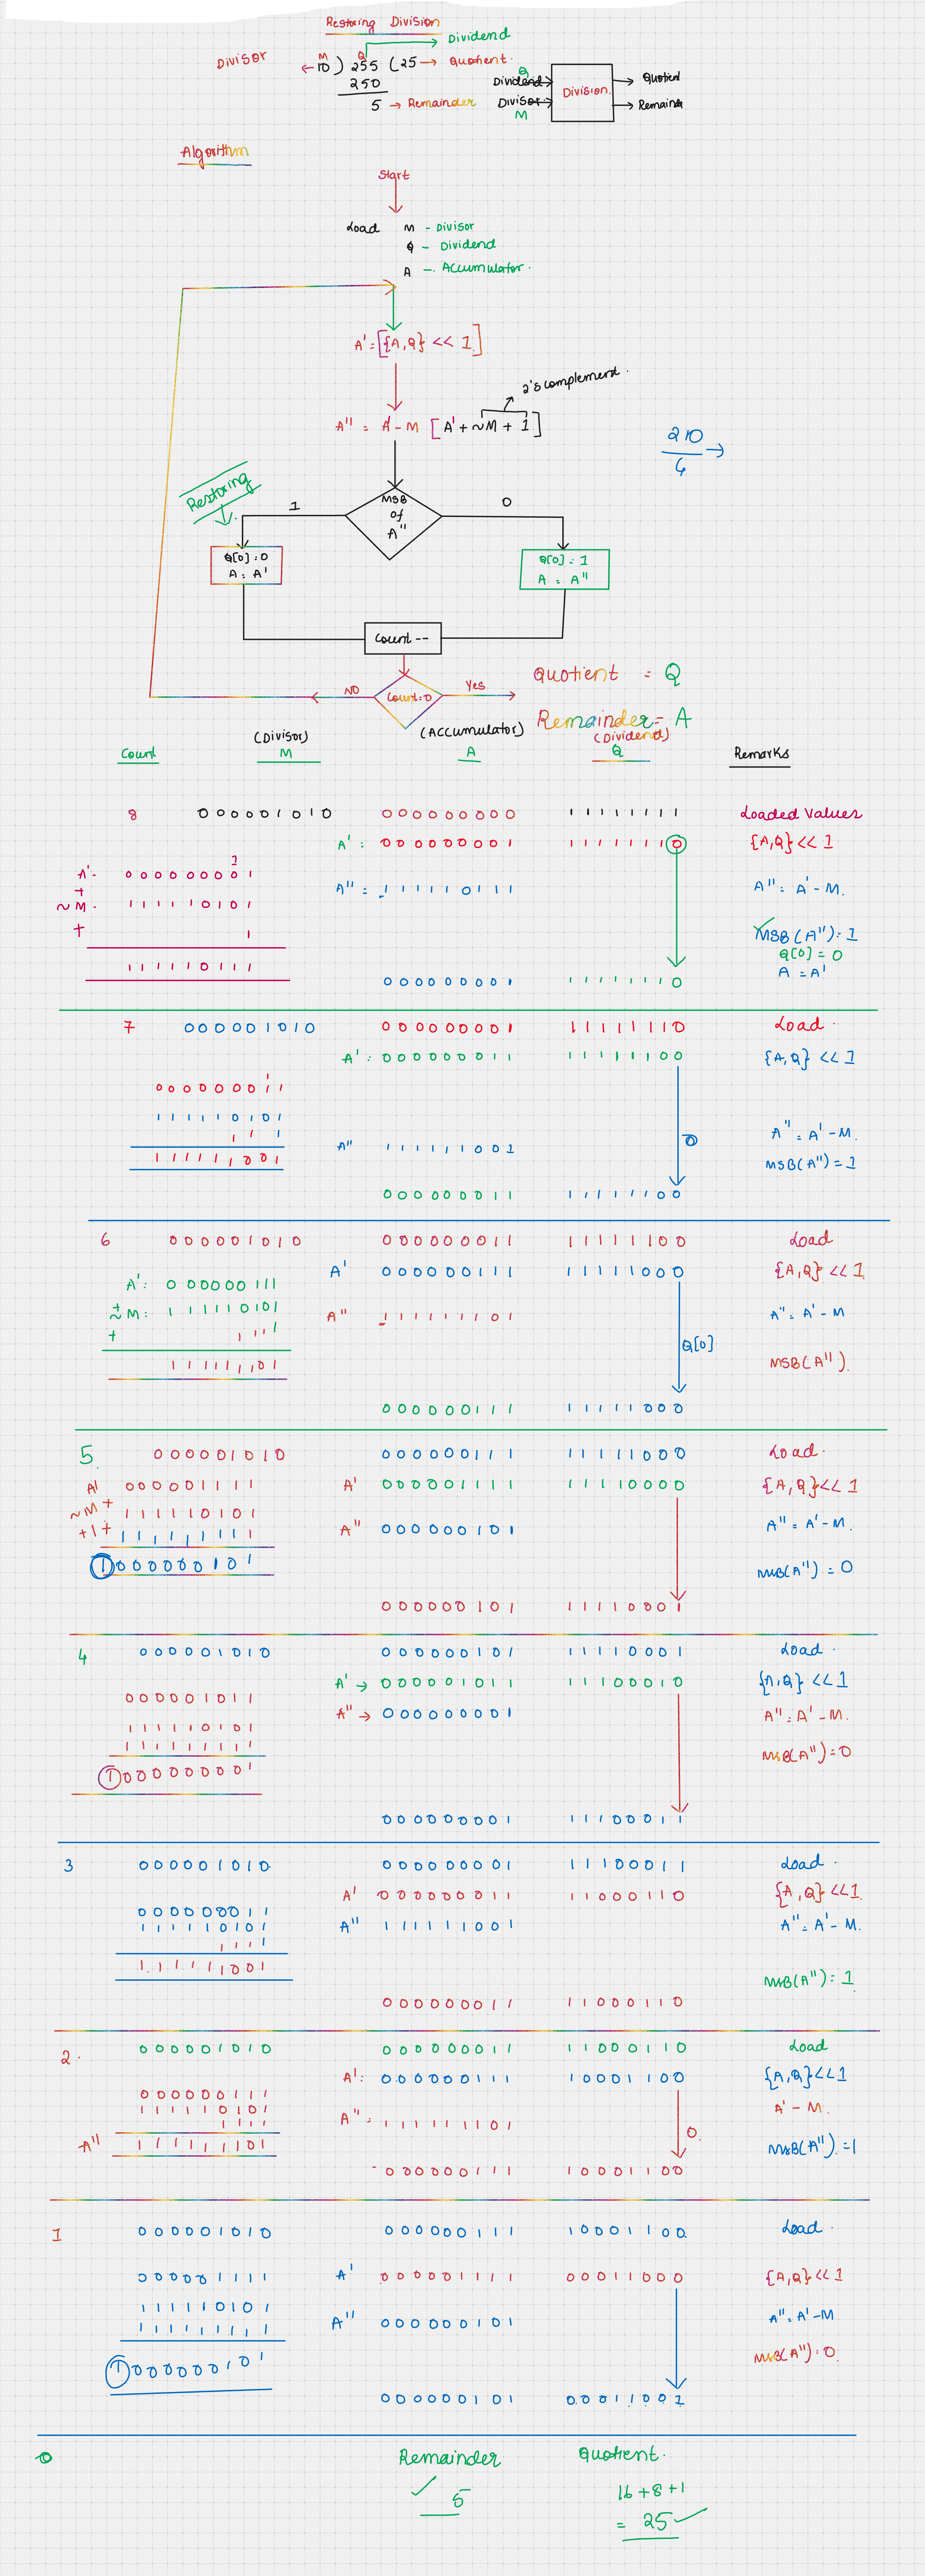 Restoring Division
Dividend
Divisor
M Q
← 10 ) 255 ( 25 → Quotient.
250
5 → Remainder
Q
Dividend
Divisor
M
Division.
Quotient
Remainder
Algorithm
Start
Load M - Divisor
Q - Dividend
A - Accumulator.
A' = [{A,Q} << 1]
2's complement.
A'' = A' - M [A' + ~M + 1]
210
6
→
Restoring
1
MSB
of
A''
0
Q[0] = 0
A = A'
Q[0] = 1
A = A''
Count --
NO
Count=0
Yes
Quotient = Q
Remainder = A
Count
(Divisor)
M
(Accumulator)
A
(Dividend)
Q
Remarks
8 000001010 000000000 11111111 Loaded Values
A' : 000000001 11111110 {A,Q} << 1
1
A' - 000000001
+
~M - 111110101
+ 1
111110111
A'' = 111110111 A'' = A' - M.
MSB(A'') = 1
Q[0] = 0
A = A'
000000001 11111110
7 000001010 000000001 11111110 Load.
A' : 000000011 11111100 {A,Q} << 1
000000011
111110101
111
111111001
A'' 111111001 0 A'' = A' - M.
MSB(A'') = 1
000000011 11111100
6 000001010 000000011 11111100 Load
A' 000000111 11111000 {A,Q} << 1
A' : 000000111
+
~M : 111110101
+ 111
111111101
A'' 111111101 A'' = A' - M
Q[0]
MSB(A'').
000000111 11111000
5. 000001010 000000111 11111000 Load.
A' 000001111
~M + 111110101
+1+ 111111111
1000000101
A' 000001111 11110000 {A,Q} << 1
A'' 000000101 A'' = A' - M.
MSB(A'') = 0
000000101 11110001
4 000001010 000000101 11110001 Load.
A' → 000001011 11100010 {A,Q} << 1
000001011
111110101
111111111
1000000001
A'' → 000000001 A'' = A' - M.
MSB(A'') = 0
000000001 11100011
3 000001010 000000001 11100011 Load.
A' 000000011 11000110 {A,Q} << 1.
000000011
111110101
111
111111001
A'' 111111001 A'' = A' - M.
MSB(A'') = 1
000000011 11000110
2. 000001010 000000011 11000110 Load
A' : 000000111 10001100 {A,Q} << 1
000000111
111110101
111
A'' 111111101
A'' = 111111101 0. A' - M.
MSB(A'') = 1
000000111 10001100
1 000001010 000000111 10001100 Load.
A' 000001111 00011000 {A,Q} << 1
000001111
111110101
111111111
1000000101
A'' 000000101 A'' = A' - M
MSB(A'') = 0.
000000101 00011001
0 Remainder Quotient.
5
16 + 8 + 1
= 25